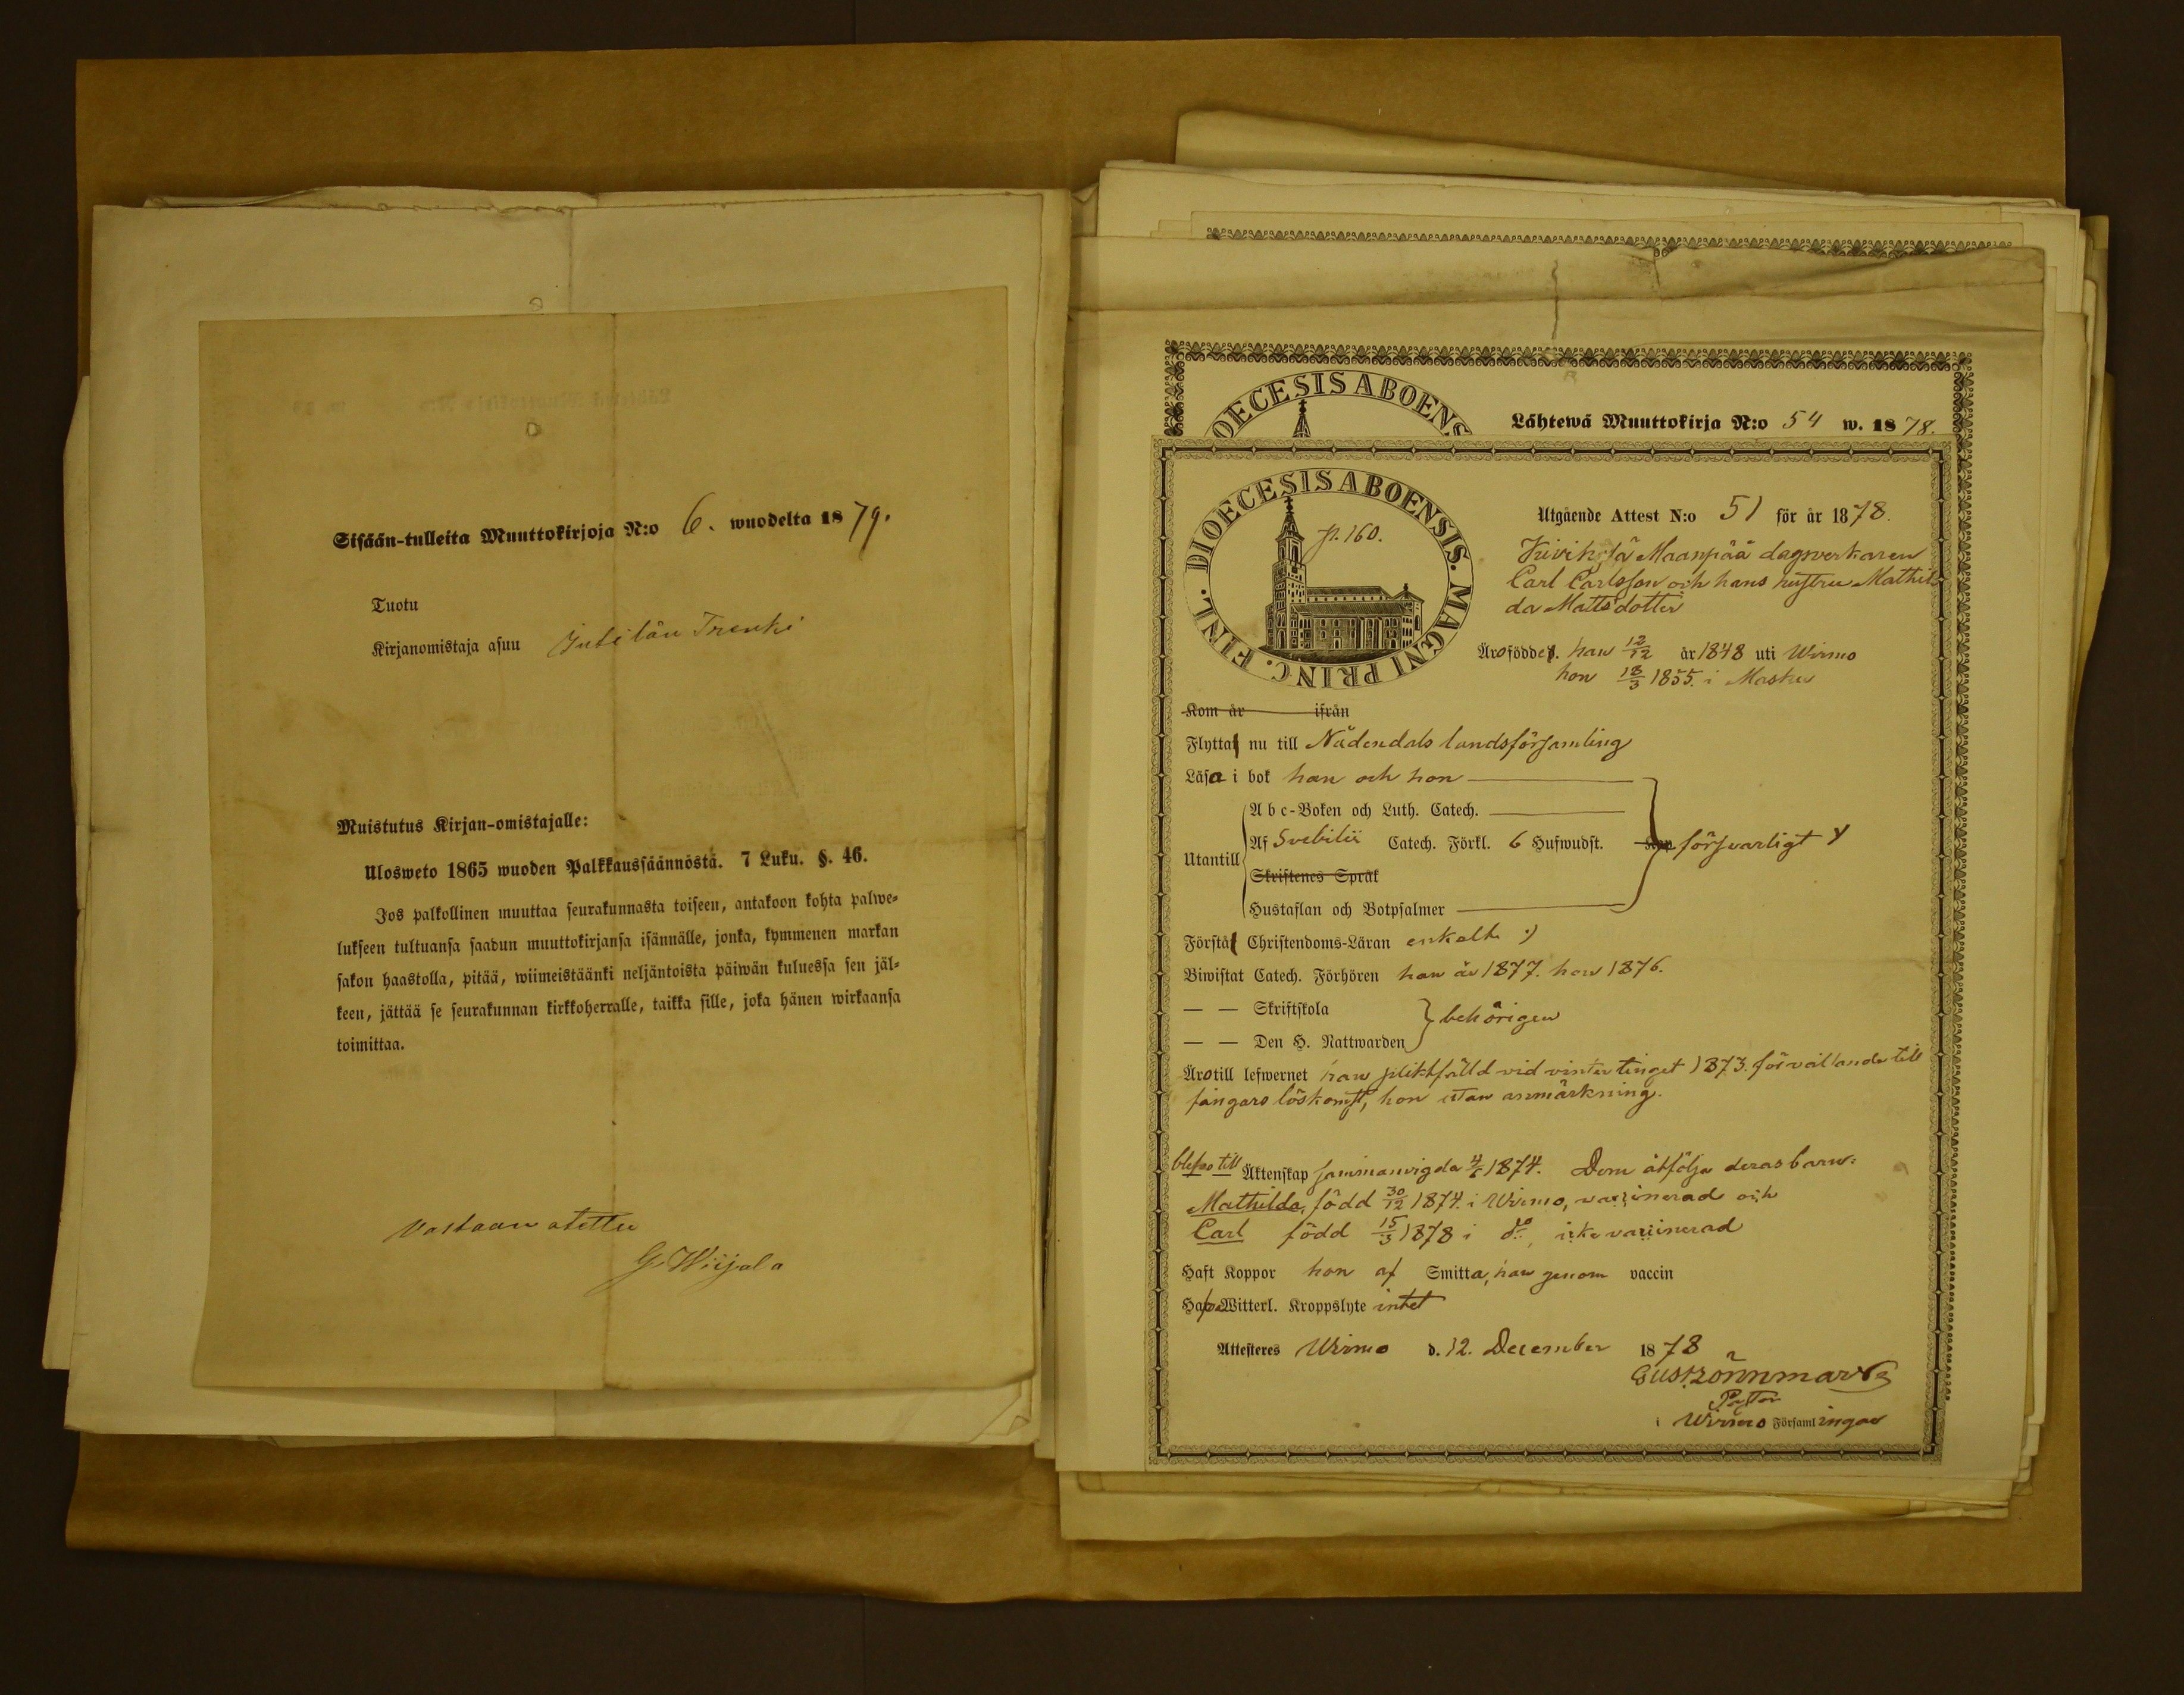 Sisään-tulleita Muuttokirjoja N:o 6. wuodelta 1879.
Tuotu
Kirjanomistaja asuu
Muistutus Kirjan-omistajalle:
Ulosweto 1865 wuoden Palkkaussäännöstä. 7 Luku. §. 46.
Jos palkollinen muuttaa seurakunnasta toiseen, antakoon kohta palwe-
lukseen tultuansa saadun muuttokirjansa isännälle, jonka, kymmenen markan
sakon haastolla, pitää, wiimeistäänki neljäntoista päiwän kuluessa sen jäl-
keen, jättää se seurakunnan kirkkoherralle, taikka sille, joka hänen wirkaansa
toimittaa.
Vastaan otettu
G. Wiijala
DIOECESIS ABOENS
Lähtewä Muuttokirja N:o 54 w. 1878.
DIOECESIS ABOENSIS. MAGNI PRINC. FINL.
p. 160.
Utgående Attest N:o 51 för år 1878.
Maanpää dagsverkaren
Carl Carlsson och hans hustru Mathil
da Matts dotter
Äro födde han 12/12 år 1848 uti Wirmo
hon 18/3 1855. i Masku
Kom år ifrån
Flytta nu till Nådendals landsförsamling
Läsa i bok han och hon
A b c-Boken och Luth. Catech.
Utantill Af Svebilii Catech. Förkl. 6 Hufwudst. försvarligt
Skriftenes Språk
Hustaflan och Botpsalmer
Förstå Christendoms-Läran enkelt
Biwistat Catech. Förhören han år 1877. hon 1876.
— — Skriftskola
behörigen
— — Den H. Nattwarden
Äro till lefwernet han pliktfälld vid vintertinget 1873. för vållande till
fångars löskomst, hon utan anmärkning.
blefvo till Äktenskap sammanvigda 4/6 1874. Dem åtfölja deras barn:
Mathilda, född 30/12 1874. i Wirmo, vaccinerad och
Carl född 15/3 1878 i do, icke vaccinerad
Haft Koppor hon af Smitta, han genom vaccin
Hafva Witterl. Kroppslyte intet
Attesteres Wirmo d. 12. December 1878
Gust Rönnmark
Pastor
i Wirmo Församlingar